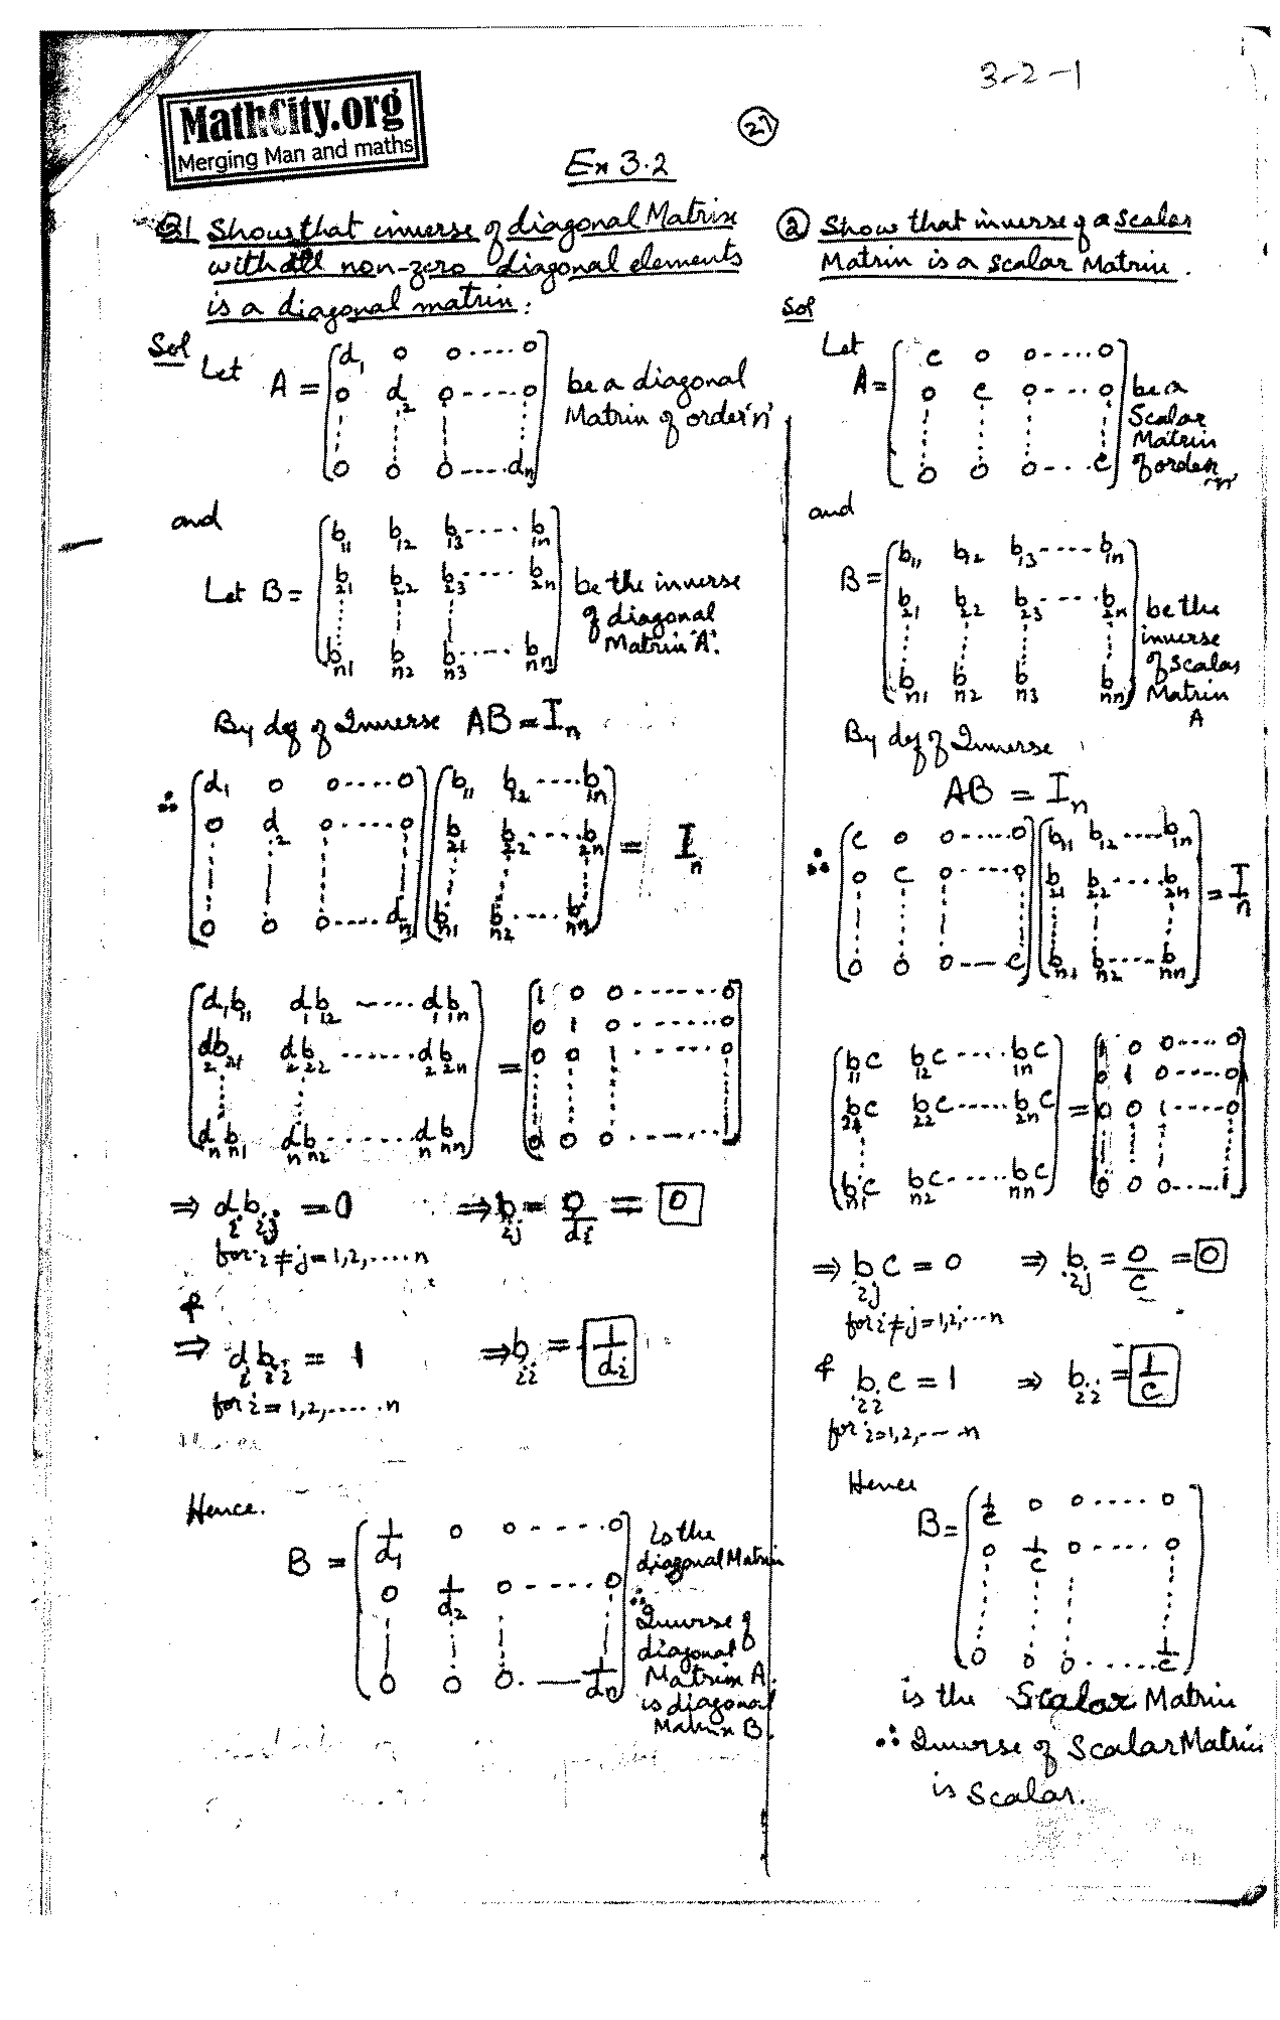 3-2-1
MathCity.org
Merging Man and maths
27
Ex 3.2
Q1 Show that inverse of diagonal Matrix
with all non-zero diagonal elements
is a diagonal matrix.
Sol Let
A = [d₁ 0 0 ---- 0
0 d₂ 0 ---- 0
0 0 0 ---- dₙ]
be a diagonal
Matrix of order 'n'
and
Let B = [b₁₁ b₁₂ b₁₃ ---- b₁ₙ
b₂₁ b₂₂ b₂₃ ---- b₂ₙ
bₙ₁ bₙ₂ bₙ₃ ---- bₙₙ]
be the inverse
of diagonal
Matrix 'A'.
By def of Inverse AB = Iₙ
∴ [d₁ 0 0 ---- 0
0 d₂ 0 ---- 0
0 0 0 ---- dₙ] [b₁₁ b₁₂ ---- b₁ₙ
b₂₁ b₂₂ ---- b₂ₙ
bₙ₁ bₙ₂ ---- bₙₙ] = Iₙ
[d₁b₁₁ d₁b₁₂ ---- d₁b₁ₙ
d₂b₂₁ d₂b₂₂ ---- d₂b₂ₙ
dₙbₙ₁ dₙbₙ₂ ---- dₙbₙₙ] = [1 0 0 ---- 0
0 1 0 ---- 0
0 0 1 ---- 0
0 0 0 ---- 1]
⇒ dᵢbᵢⱼ = 0 ⇒ bᵢⱼ = 0/dᵢ = 0
for i ≠ j = 1,2,....n
&
⇒ dᵢbᵢᵢ = 1 ⇒ bᵢᵢ = 1/dᵢ
for i = 1,2,.....n
Hence.
B = [1/d₁ 0 0 ---- 0
0 1/d₂ 0 ---- 0
0 0 0 ---- 1/dₙ]
is the
diagonal Matrix
∴
Inverse of
diagonal
Matrix A.
is diagonal
Matrix B.
② Show that inverse of a scalar
Matrix is a scalar Matrix.
Sol
Let
A = [c 0 0 ---- 0
0 c 0 ---- 0
0 0 0 ---- c]
be a
Scalar
Matrix
of order
'n'
and
B = [b₁₁ b₁₂ b₁₃ ---- b₁ₙ
b₂₁ b₂₂ b₂₃ ---- b₂ₙ
bₙ₁ bₙ₂ bₙ₃ bₙₙ]
be the
inverse
of scalar
Matrix
A
By def of Inverse
AB = Iₙ
∴ [c 0 0 ---- 0
0 c 0 ---- 0
0 0 0 ---- c] [b₁₁ b₁₂ ---- b₁ₙ
b₂₁ b₂₂ ---- b₂ₙ
bₙ₁ bₙ₂ ---- bₙₙ] = Iₙ
[b₁₁c b₁₂c ---- b₁ₙc
b₂₁c b₂₂c ---- b₂ₙc
bₙ₁c bₙ₂c ---- bₙₙc] = [1 0 0 ---- 0
0 1 0 ---- 0
0 0 1 ---- 0
0 0 0 ---- 1]
⇒ bᵢⱼc = 0 ⇒ bᵢⱼ = 0/c = 0
for i ≠ j = 1,2,...n
& bᵢᵢc = 1 ⇒ bᵢᵢ = 1/c
for i=1,2,---n
Hence
B = [1/c 0 0 ---- 0
0 1/c 0 ---- 0
0 0 0 ---- 1/c]
is the Scalar Matrix
∴ Inverse of Scalar Matrix
is Scalar.